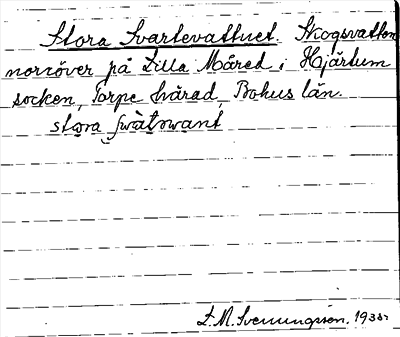 Stora Svartevattnet. Skogsvatten
norröver på Lilla Måred i Hjärtum
socken, Torpe härad, Bohus län.
stora swàtwant
L. M. Svenungsson. 1935.